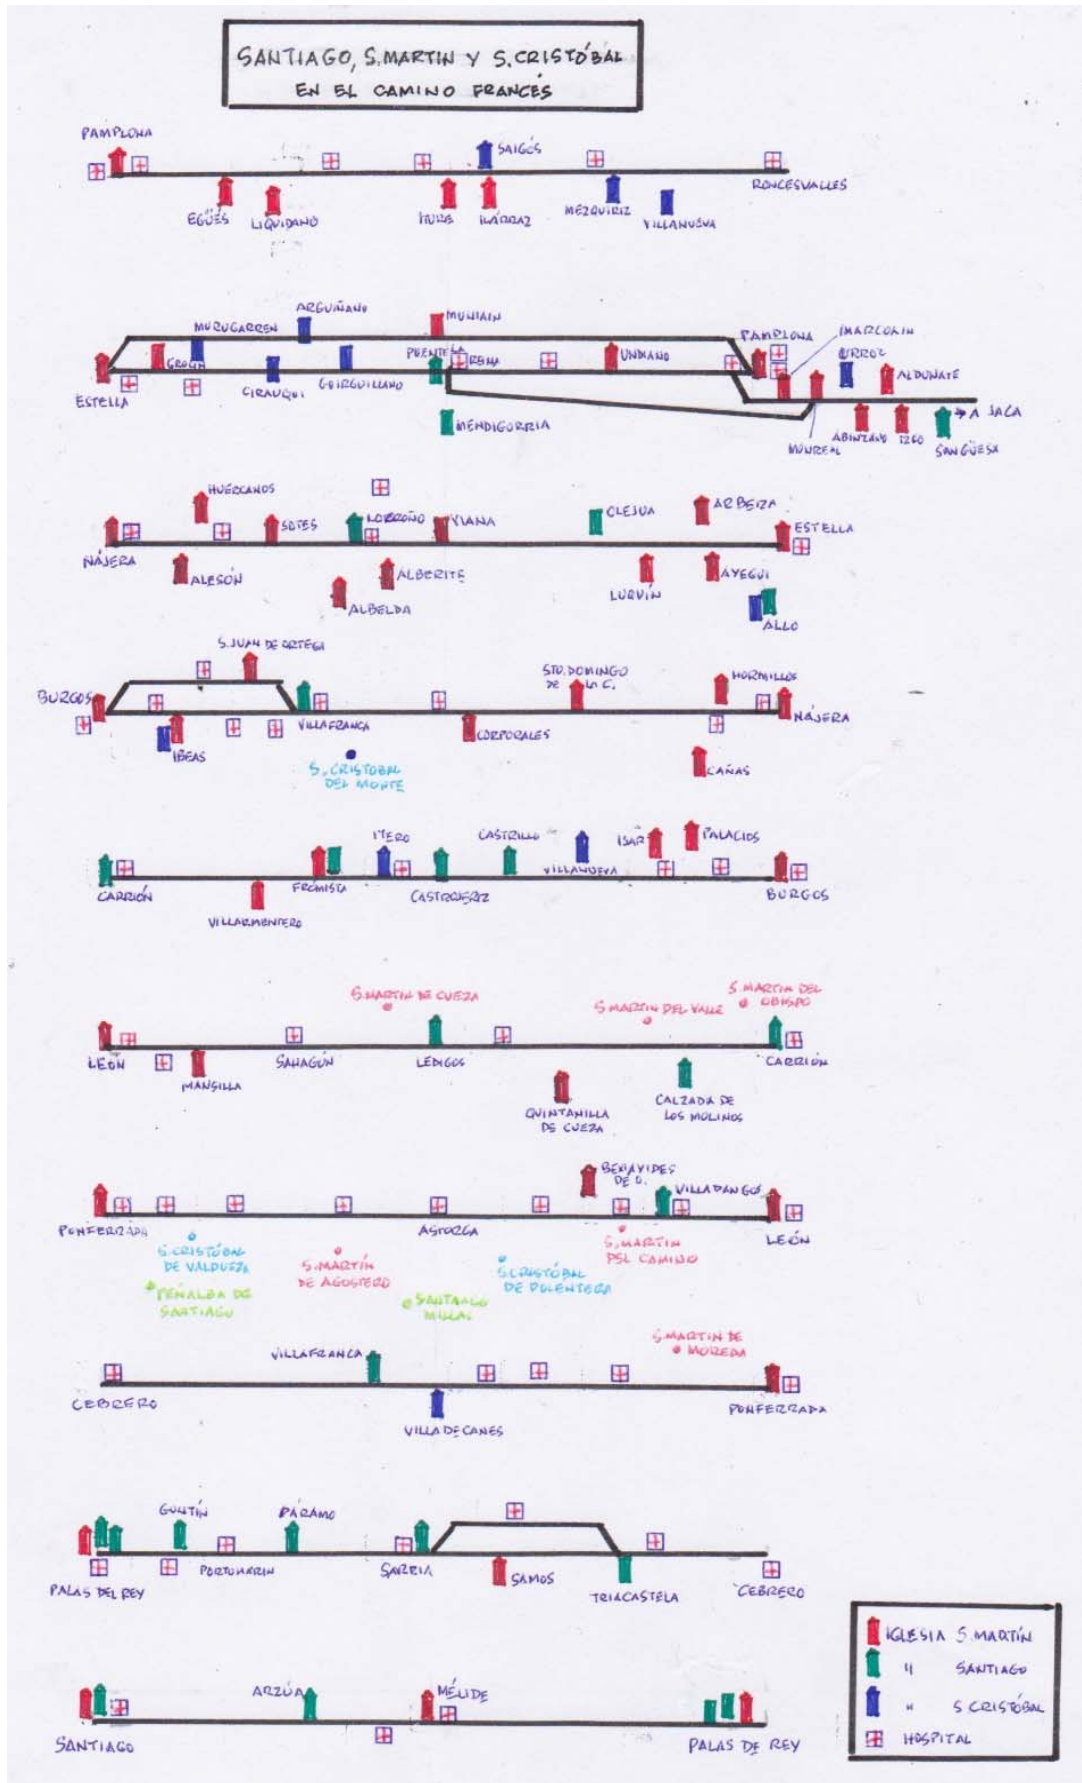 SANTIAGO, S.MARTIN Y S.CRISTÓBAL
EN EL CAMINO FRANCÉS
PAMPLONA
SAIGÓS
RONCESVALLES
EGÜÉS
LIQUIDANO
ILÁRRAZ
MEZQUIRIZ
VILLANUEVA
ARGUIÑANO
MUNIAIN
MURUGARREN
PAMPLONA
IMARCOAIN
PUENTE LA
REINA
UNDIANO
URROZ
ALDUNATE
CIRAUQUI
GUIRGUILLANO
ESTELLA
MENDIGORRIA
→ A JACA
ABINZANO
IZCO
MONREAL
SANGÜESA
HUERCANOS
SOTES
LOGROÑO
VIANA
OLEJUA
ARBEIZA
ESTELLA
NÁJERA
ALESÓN
ALBERITE
ALBELDA
LUQUÍN
AYEGUI
ALLO
S.JUAN DE ORTEGA
STO.DOMINGO
DE LA C.
HORMILLOS
BURGOS
VILLAFRANCA
NÁJERA
IBEAS
CORPORALES
S. CRISTOBAL
DEL MONTE
CAÑAS
ITERO
CASTRILLO
ISAR
PALACIOS
VILLANUEVA
CARRIÓN
FROMISTA
CASTROJERIZ
BURGOS
VILLARMENTERO
S.MARTIN DE CUEZA
S.MARTIN DEL VALLE
S.MARTIN DEL
OBISPO
LEÓN
SAHAGÚN
LÉDIGOS
CARRIÓN
MANSILLA
QUINTANILLA
DE CUEZA
CALZADA DE
LOS MOLINOS
BENAVIDES
DE O.
VILLADANGOS
PONFERRADA
ASTORGA
LEÓN
S.CRISTÓBAL
DE VALDUEZA
S.MARTÍN
DE AGOSTEDO
S.CRISTÓBAL
DE POLENTERA
S.MARTIN
DEL CAMINO
PEÑALBA DE
SANTIAGO
SANTIAGO
MILLAS
VILLAFRANCA
S.MARTIN DE
MOREDA
CEBRERO
PONFERRADA
VILLADECANES
GUNTÍN
PÁRAMO
PALAS DEL REY
PORTOMARIN
SARRIA
SAMOS
TRIACASTELA
CEBRERO
IGLESIA S.MARTÍN
" SANTIAGO
" S CRISTÓBAL
HOSPITAL
ARZÚA
MÉLIDE
SANTIAGO
PALAS DE REY